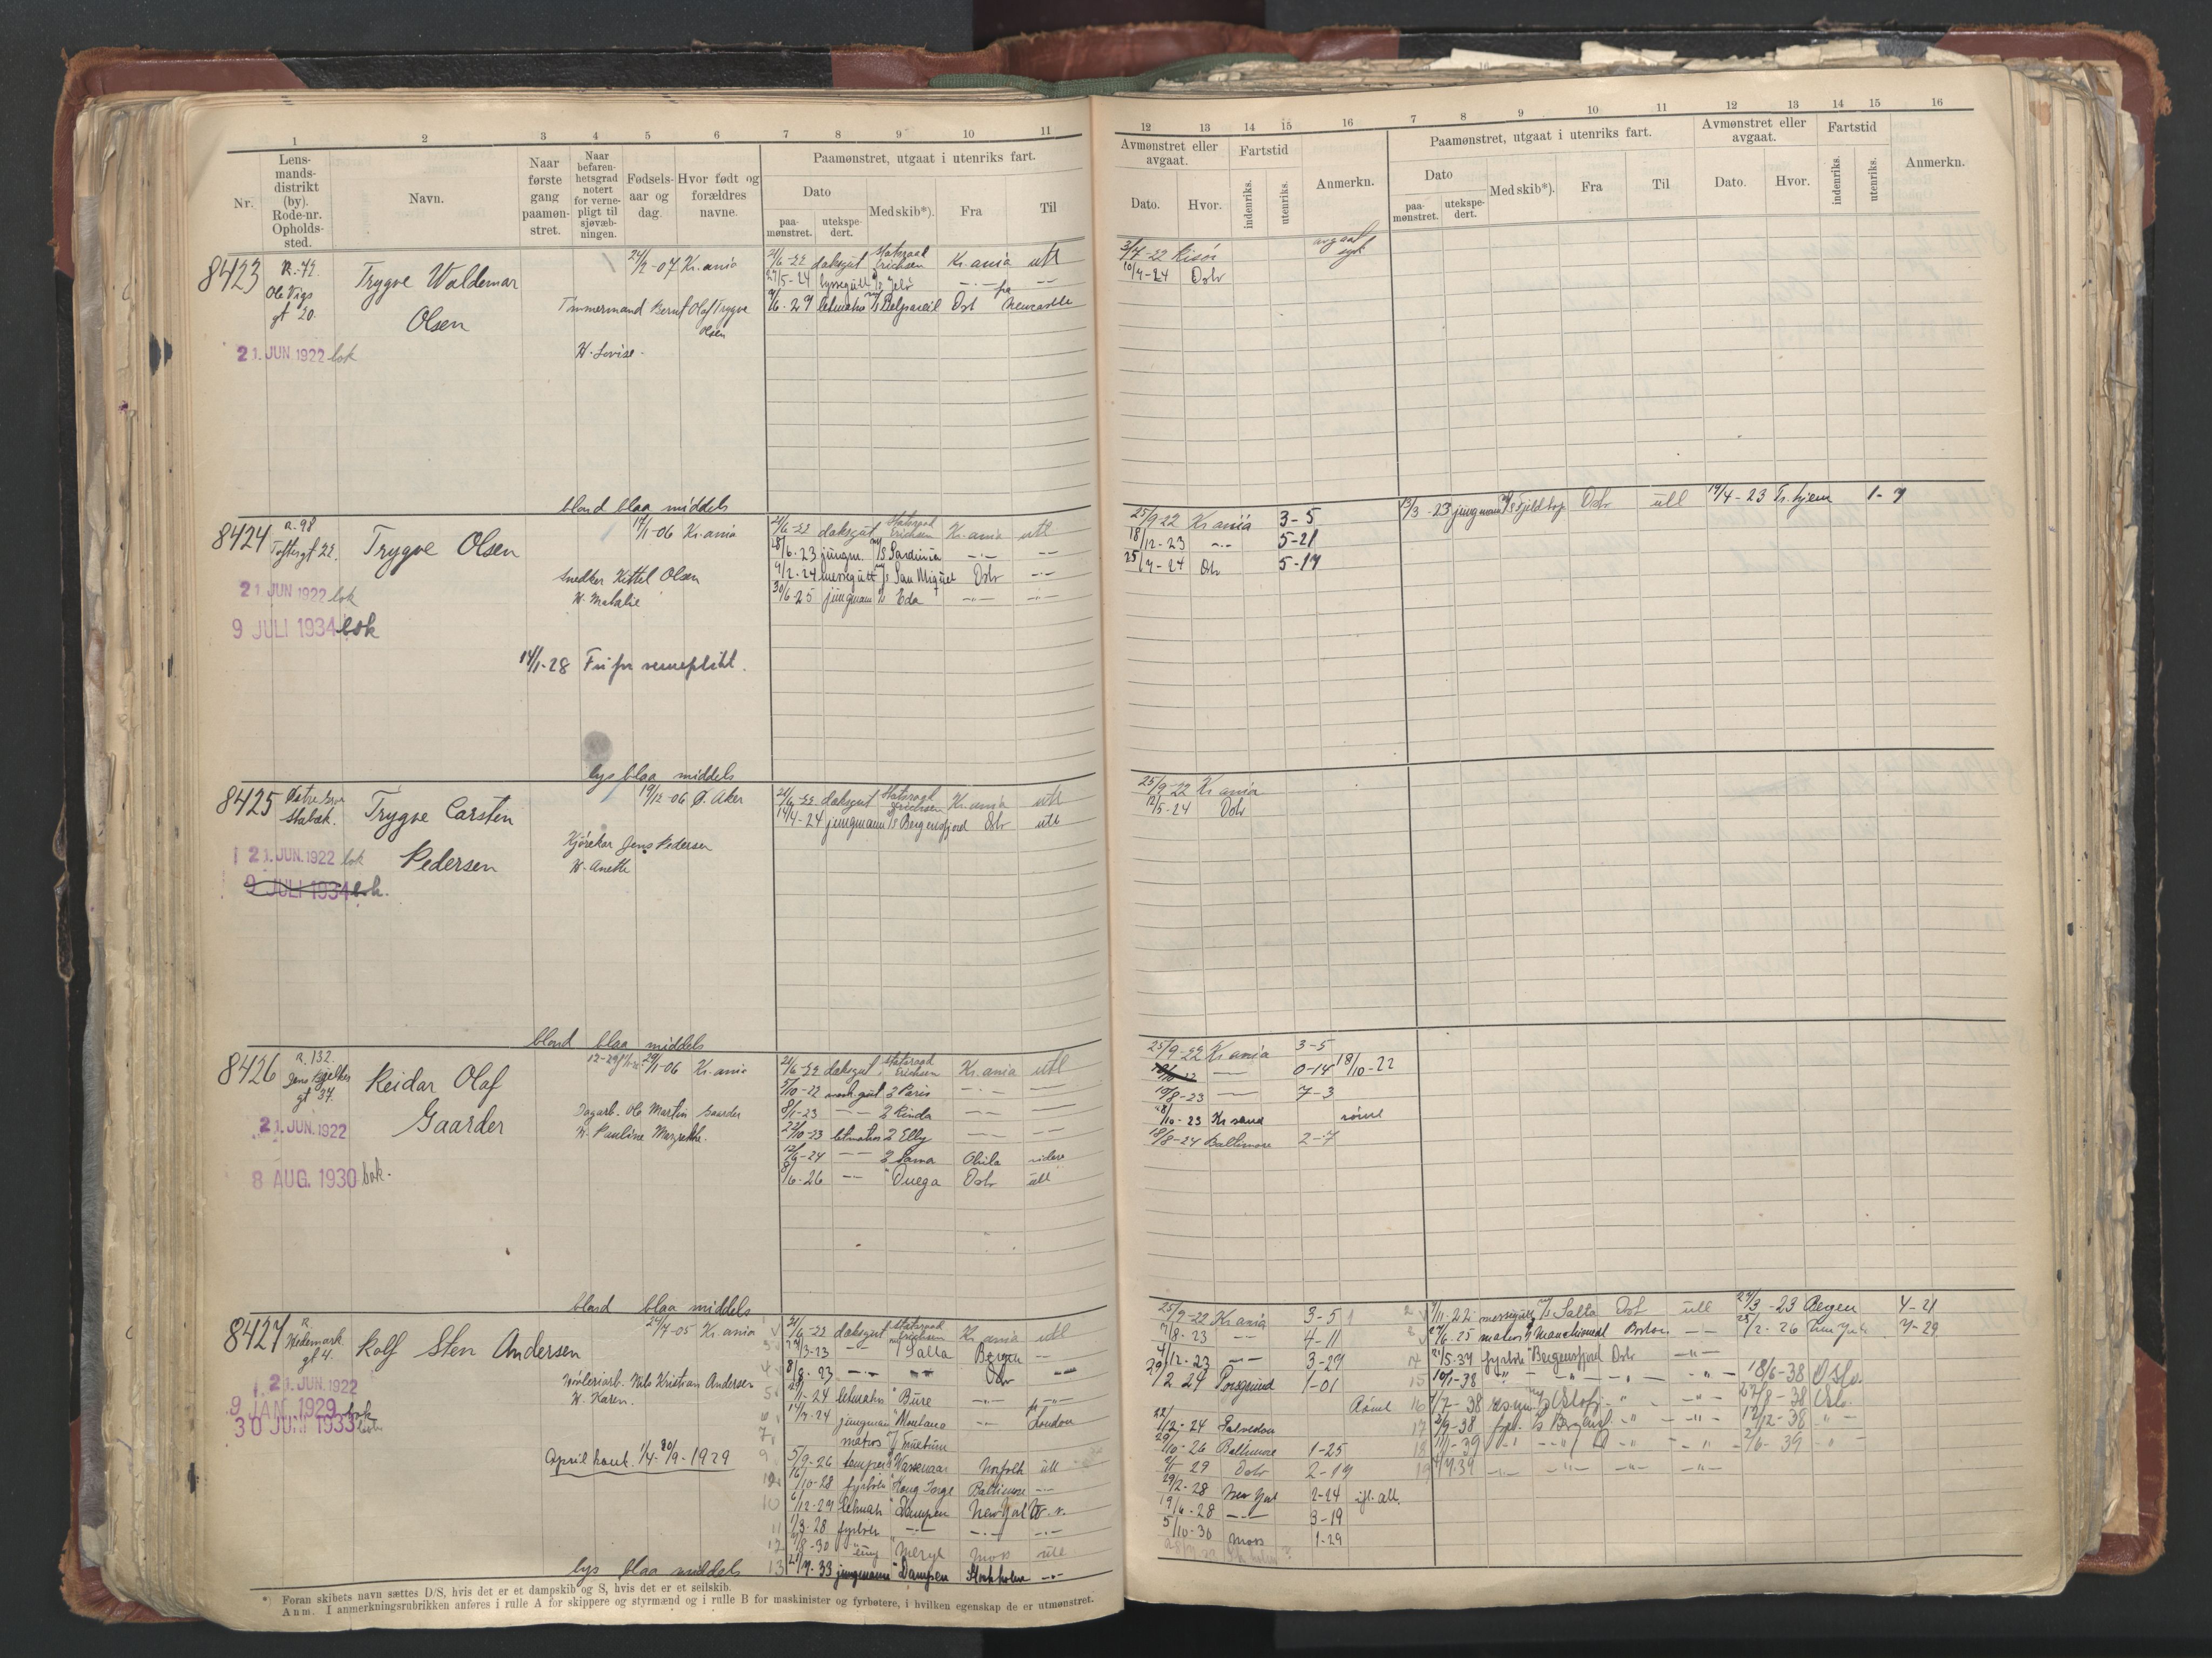 1 2 3 4 5 6 7 8 9 10 11
Nr.
Lens-
mands-
distrikt
(by).
Rode-nr.
Opholds-
sted.
Navn.
Naar
første
gang
paamøn-
stret.
Naar
befaren-
hetsgrad
notert
for verne-
pligt til
sjøvæb-
ningen.
Fødsels-
aar og
dag.
Hvor født og
forældres
navne.
Paamønstret, utgaat i utenriks fart.
Dato
paa-
mønstret.
utekspe-
dert.
Med skib*).
Fra
Til
8423 R. 72 Trygve Waldemar 24/2-07 Kr.ania 21/6-22 daksgut Statsraad Erichsen Kr.ania utl
Ole Vigs gt 20. 27/5-24 byssegutt
Olsen Tømmermand Bernt Olaf Trygve Olsen
21. JUN 1922 bok
W. Lovise.
blond blaa middels
8424 R. 98 Trygve Olsen 17/1-06 Kr.ania 21/6-22 daksgut Statsraad Erichsen Kr.ania utl
Toftesgt 22. 18/6-23 jungm. M/S Sardinia -"- -"-
Snedker Kittel Olsen 9/2-24 messegutt M/S San Miguel Oslo -"-
21 JUN 1922 bok W. Natalie 30/6-25 jungmann Eda -"- -"-
9 JULI 1934 bok
14/1-28 Fri for verneplikt.
lys blaa middels
8425 Østre
Stabæk. Trygve Carsten 19/12-06 Ø. Aker 21/6-22 daksgut Statsraad Erichsen Kr.ania utl
14/4-24 jungmann D/S Bergensfjord Oslo utl
21. JUN. 1922 bok Pedersen Kjørekar Jens Pedersen
W. Anette
9 JULI 1934 bok.
blond blaa middels
8426 R. 132. Reidar Olaf 29/1-06 Kr.ania 21/6-22 daksgut Statsraad Erichsen Kr.ania utl
Jens Bjelkes gt 37. 5/10-22 mask.gut Paris
Dagarb. Ole Martin Gaarder 8/1-23 Rinda
Gaarder 22/10-23 letmatros Elly
21. JUN. 1922 W. Pauline Margrethe. 12/6-24 Sama videre
8 AUG. 1930 bok. 8/6-26 Oslo utl
blond blaa middels
8427 R. Rolf Sten Andersen 24/7-05 Kr.ania 21/6-22 daksgut Statsraad Erichsen Kr.ania utl
Hedemark gt 4. 3 24/3-23 Salta Bergen
4 8/8-23 Oslo
Nils Kristian Andersen
W. Karen. 5 letmatros Bure
21. JUN 1922 jungman Montana London
9 JAN 1929 bok 7 matros
30 JUNI 1933 bok
April haut. 1/4-30/9-1929 9 5/9-26 Wassenaar Norfolk utl
12 16/10-28 fyrbøter Kong Inge Baltimore
10 6/12-27 letmatr Dampen New York
11 1/3-28 fyrbøter
12 1/8-30 Meryl Moss utl
lys blaa middels 13 21/7-33 jungmann Dampen Stockholm
*) Foran skibets navn sættes D/S, hvis det er et dampskib og S, hvis det er et seilskib.
Anm. I anmerkningsrubrikken anføres i rulle A for skippere og styrmænd og i rulle B for maskinister og fyrbøtere, i hvilken egenskap de er utmønstret.
12 13 14 15 16 7 8 9 10 11 12 13 14 15 16
Avmønstret eller
avgaat.
Fartstid
Dato.
Hvor.
indenriks.
utenriks.
Anmerkn.
Paamønstret, utgaat i utenriks fart.
Dato
paa-
mønstret.
utekspe-
dert.
Med skib*).
Fra
Til
Avmønstret eller
avgaat.
Dato.
Hvor.
Fartstid
indenriks.
utenriks.
Anmerkn.
3/7-22 Risør avgaat syk
10/7-24 Oslo
25/9-22 Kr ania 3-5 13/3-23 jungmann Fjeldtop Oslo utl 19/4-23 Tr.hjem 1-7
18/12-23 -"- 5-21
25/7-24 Oslo 5-17
25/9-22 Kr ania
12/5-24 Oslo
25/9-22 Kr ania 3-5
0-14 18/10-22
10/8-23 7-3
18/10-23 Kr sand rømt
18/8-24 Baltimore 2-7
25/9-22 Kr ania 3-5 7/11-22 messegutt Salta Oslo utl 24/3-23 Bergen 4-21
7/8-23 4-11 27/6-25 matros Boston 25/2-26 New York 7-29
4/12-23 3-29 14 21/5-37 fyrbøter Bergensfjord Oslo
29/2 24 Porsgrund 1-01 15 10/1-38 18/6-38 Oslo.
Rømt 16 27/8-38 Oslo.
12-24 17 2/9-38 12/12-38
29/10-26 Baltimore 1-25 18 11/1-39 2/6-39
29 Oslo 2-17
29/2-28 New York 2-24
19/6-28 3-19
5/10-30 Moss 1-29